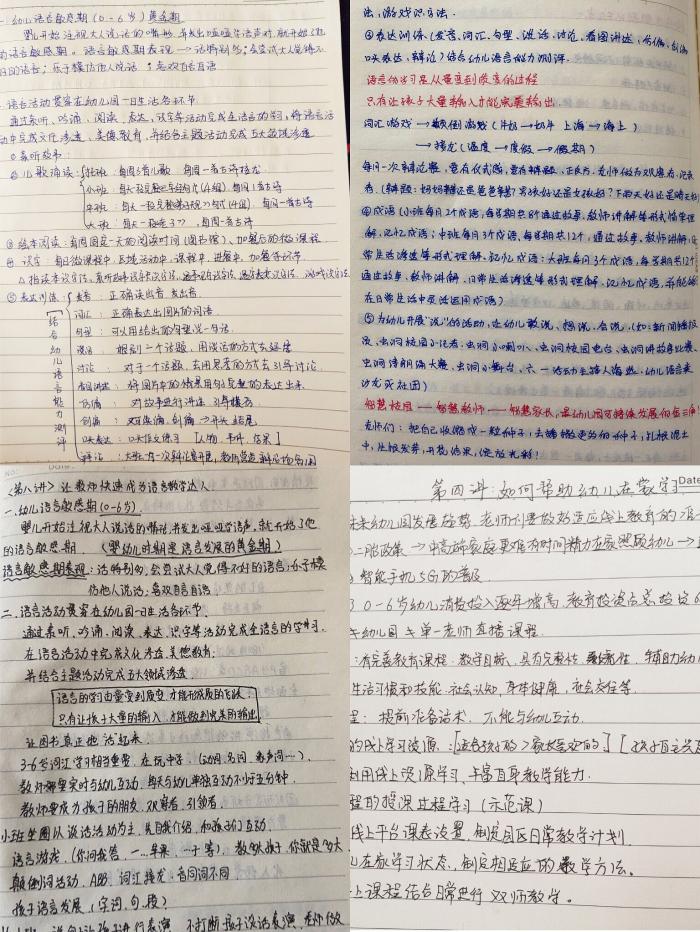 一.幼儿语言敏感期(0-6岁)黄金期
婴儿开始注视大人说话的嘴形,并发出咿咿学语声时,就开始了他
的语言敏感期。语言敏感期表现→话特别多;会尝试大人觉得不
好的语言;乐于模仿他人说话;喜欢自言自语
二.语言活动贯穿在幼儿园一日生活各环节
通过表听、吟诵、阅读、表达、识字等活动完成全语言的学习,将语言活
动中完成文化渗透、美德教育,并结合主题活动完成五大领域渗透
①表听故事:
②儿歌诵读:托班:每周3首儿歌 每周一首古诗
小班: 每周一首古诗
中班: 每周一首古诗
大班:每天一段 ,每周一首古诗
③绘本阅读:每周固定一天的阅读时间(图书馆)、加餐后的微课程
④识字:每日微课程中、区域活动中、课程中、进餐中、加餐等环节
⑤表达训练:发音:正确读出音、发出音.
词汇:正确表达出图片的词语.
句型:可以用给出的句型说一句话.
说话:根据一个话题,用谈话的方式去延続
讨论:对于一个话题,去用思考的方式去引导讨论.
看图讲述:将图片中的情景用句子完整的表达出来
仿编:对故事进行讲述、引导模仿.
创编:对图编、创编→开头 结尾
口头表达:口头作文练习 [人物、事件、结果]
结合幼儿语言能力测评
法,游戏识字法.
④表达训练(发音、词汇、句型、说话、讨论、看图讲述、仿编、创编
口头表达、辩论)结合幼儿语言能力测评.
语言的学习是从量变到质变的过程
只有让孩子大量输入才能完美输出
词汇游戏→颠倒游戏(牛奶→奶牛 上海→海上)
→接龙(温度→度假→假期)
每月一次辩论赛,要有仪式感,要有辩题、正反方、老师做为观察者、记录
者.(辩题:妈妈辛苦还是爸爸辛苦?男孩好还是女孩好?下雨天好还是晴天好)
④成语(小班每月2个成语,每学期共8个通过故事、教师讲解等形式简单理
解、记忆成语;中班每月3个成语,每学期共12个,通过故事、教师讲解、日
常生活渗透等形式理解、记忆成语;大班每月3个成语,每学期共12个
通过故事、教师讲解、日常生活渗透等形式理解、记忆成语,并能够
在日常生活中灵活运用成语)
⑤为幼儿开展“说”的活动,让幼儿敢说、想说、会说.(如:新闻播报
员、虫洞校园小记者、虫洞小喇叭、虫洞校园电台、虫洞讲故事比赛、
虫洞诗朗诵大赛、虫洞小舞台、六一活动主持人海选、幼儿语言表
达会演社团)
智慧校园——智慧教师——智慧家长,是幼儿园可持续发展的
老师们:把自己收缩成一粒种子,去播撒更多的种子,扎根泥土
中,生根发芽,开花结果,绽放光彩!
<第八讲>让教师快速成为语言教学达人
一.幼儿语言敏感期(0-6岁)
婴儿开始注视大人说话的嘴形,并发出咿呀学语声,就开始了他
的语言敏感期.(婴幼儿时期是语言发展的黄金期)
语言敏感期表现:话特别多,会尝试大人觉得不好的语言;乐于模
仿他人说话;喜欢自言自语
二.语言活动贯穿在幼儿园一日生活各环节.
通过表听、吟诵、阅读、表达、识字等活动完成全语言的学习.
在语言活动中完成文化渗透,美德教育.
并结合主题活动完成五大领域渗透
语言的学习由量变到质变,才能形成质的飞跃;
只有让孩子大量的输入,才能做到完美的输出
让图书真正地“活”起来.
3-6岁词汇学习相当重要.在玩中学.(动词、名词、象声词…).
教师需要实时与幼儿互动,每天与幼儿单独互动不少于五分钟.
教师要成为孩子的朋友,观察者,引领者.
小班坐圈以谈话活动为主,先自我介绍,和孩子们互动.
语言游戏.(你问我答,一…苹果,…十等),教多大孩子,你就是多大
颠倒词活动,ABB,词汇接龙,音同词不同
孩子语言发展.(字、词、句、段)
不打断孩子谈话表演,老师做
第四讲:如何帮助幼儿在家学习
Date
未来幼儿园发展趋势,老师们要做好适应线上教育的准
二胎政策→中高龄家庭更难有时间精力在家照顾幼儿→
智能手机5G的普及.
3 0-6岁幼儿消费投入逐年增高,教育投资占总投资6
幼儿园+单一老师直播课程.
:有完善教育课程:教学目标、具有完整性、系统性,辅助幼儿
生活习惯和技能,社会认知,身体健康,社会交往等.
:提前准备话术,不能与幼儿互动.
的线上学习资源:[适合孩子的>家长喜欢的][孩子自主
利用线上资源学习、丰富自身教学能力.
程的授课过程学习(示范课)
线上平台课表设置,制定园区日常教学计划.
儿在家学习状态,制定相适应的教学方法.
上课程结合日常进行双师教学。